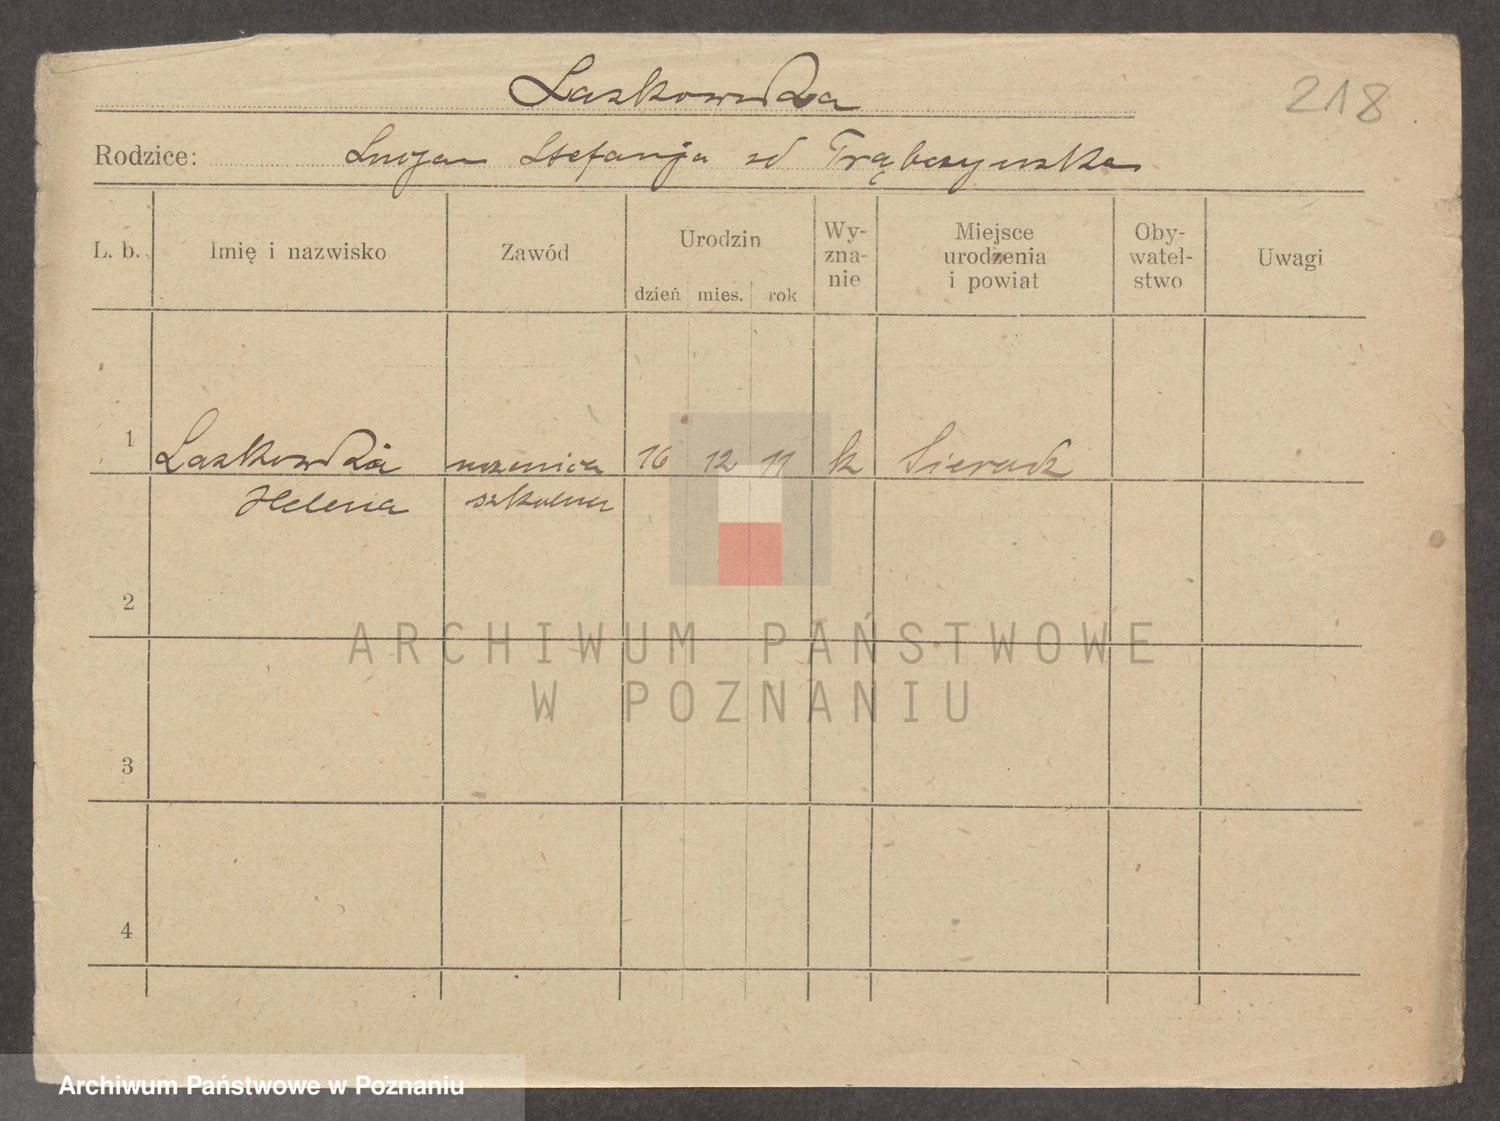 Laskowska
218
Rodzice: Lucjan Stefanja zd Trąbczyńska
L. b.
Imię i nazwisko
Zawód
Urodzin
dzień mies. rok
Wy-
zna-
nie
Miejsce
urodzenia
i powiat
Oby-
watel-
stwo
Uwagi
1 Laskowska uczenica 16 12 11 k Sieradz
Helena szkolna
2
3
4
ARCHIWUM PAŃSTWOWE
W POZNANIU
Archiwum Państwowe w Poznaniu